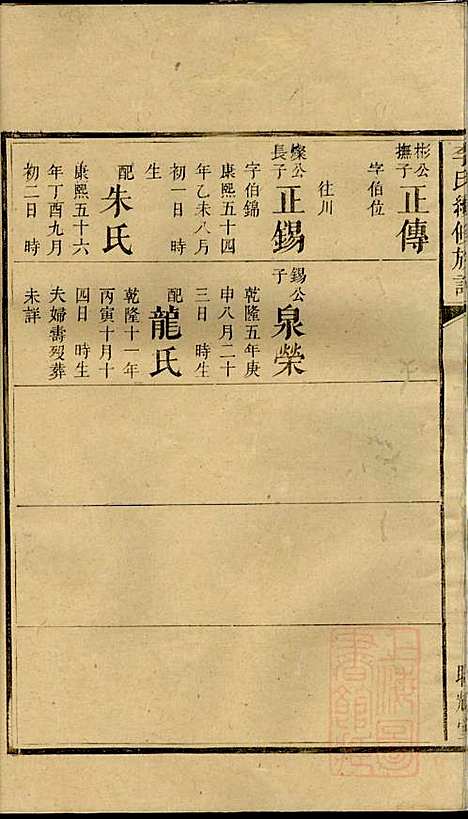 李氏續修族譜
彬公
撫子
正傳
字伯位
往川
燦公
長子
正錫
字伯錦
康熙五十四
年乙未八月
初一日 時
生
配
朱氏
康熙五十六
年丁酉九月
初二日 時
錫公
子
泉榮
乾隆五年庚
申八月二十
三日 時生
配
龍氏
乾隆十一年
丙寅十月十
四日 時生
夫婦壽歿葬
未詳
上海圖
書館藏